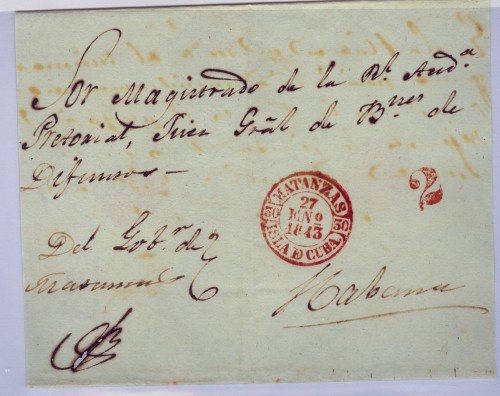 Sor Magistrado de la Rl. Auda.
Pretorial, Juez Gràl de Bnes de
Difuntos
MATANZAS
27
ENO
1843
ISLA D CUBA.
30
30
2
Del Gobr. de
Matanzas
Habana